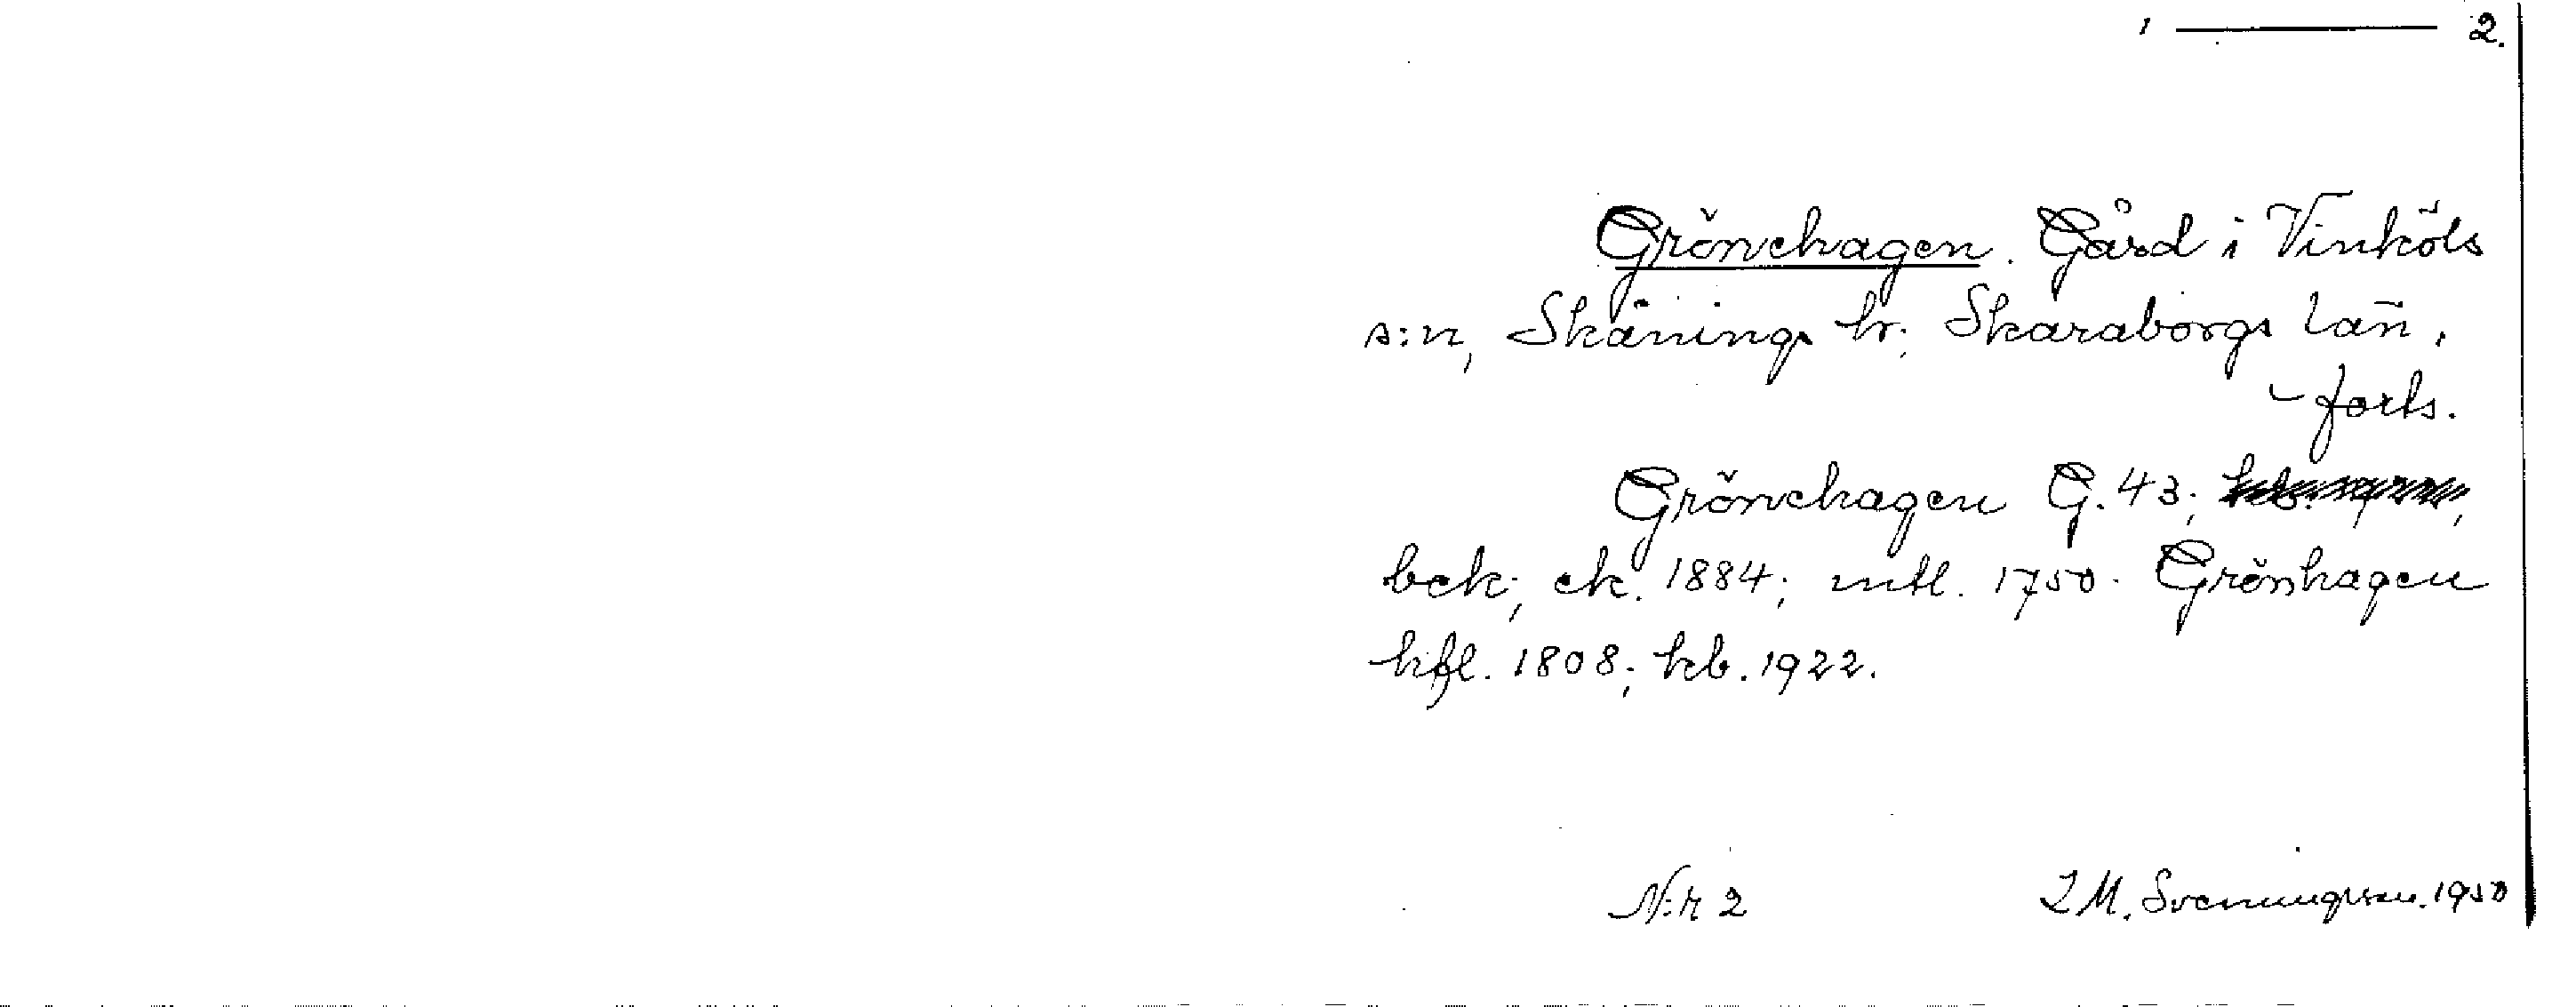 2.
Grönehagen. Gård i Vinköls
s:n, Skånings hr, Skaraborgs län,
- forts.
Grönehagen G. 43;
bek; ek. 1884; mtl. 1750. Grönhagen
hfl. 1808; kb. 1922.
N:r 2
I M. Svenungsson. 1950